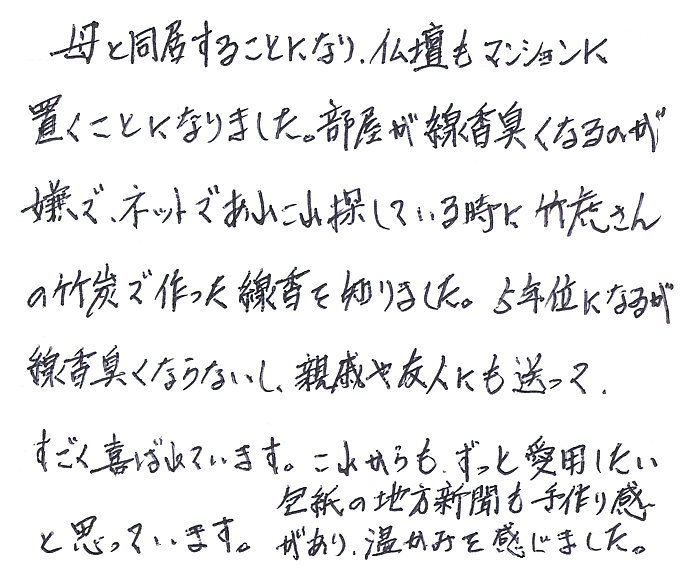 母と同居することになり、仏壇もマンションに
置くことになりました。部屋が線香臭くなるのが
嫌で、ネットであれこれ探している時に竹虎さん
の竹炭で作った線香を知りました。5年位になるが
線香臭くならないし、親戚や友人にも送って、
すごく喜ばれています。これからも、ずっと愛用したい
と思っています。
包紙の地方新聞も手作り感
があり、温かみを感じました。